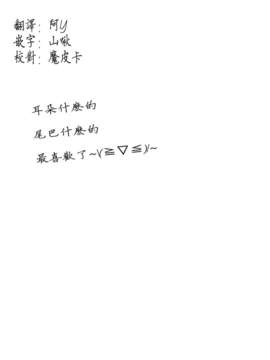 翻譯: 阿Y
嵌字: 山啾
校對: 魔皮卡
耳朵什麼的
尾巴什麼的
最喜歡了~\(≧▽≦)/~